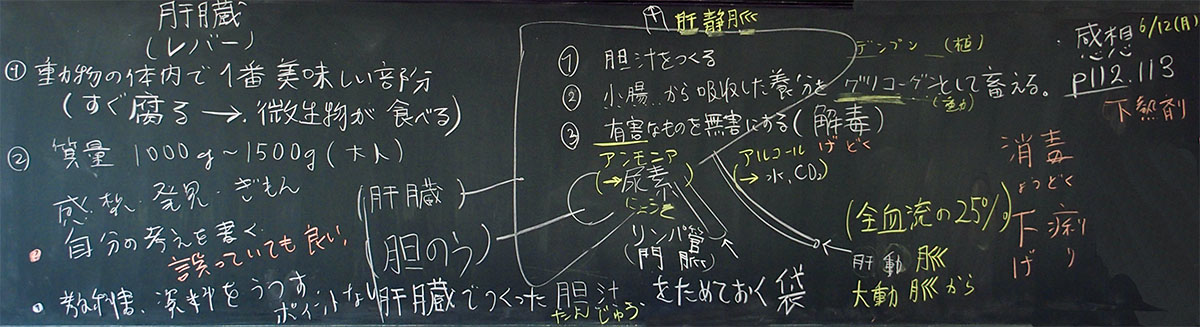 肝臓
(レバー)
① 動物の体内で1番美味しい部分
(すぐ腐る→微生物が食べる)
② 質量 1000g~1500g(大人)
感想・発見・ぎもん
自分の考えを書く
誤っていても良い
教科書、資料をうつす
ポイントなし
肝静脈
① 胆汁をつくる
② 小腸から吸収した養分をグリコーゲンとして蓄える。
デンプン(植)
(動)
③ 有害なものを無害にする(解毒)
げどく
アンモニア
(→尿素
にょうそ
アルコール
(→水、CO2)
(肝臓)
(胆のう)
リンパ管
(門脈)
肝臓でつくった胆汁をためておく袋
たんじゅう
(全血流の25%)
肝動脈
大動脈から
感想 6/12(月)
p112.113
下熱剤
消毒
しょうどく
下痢
げり